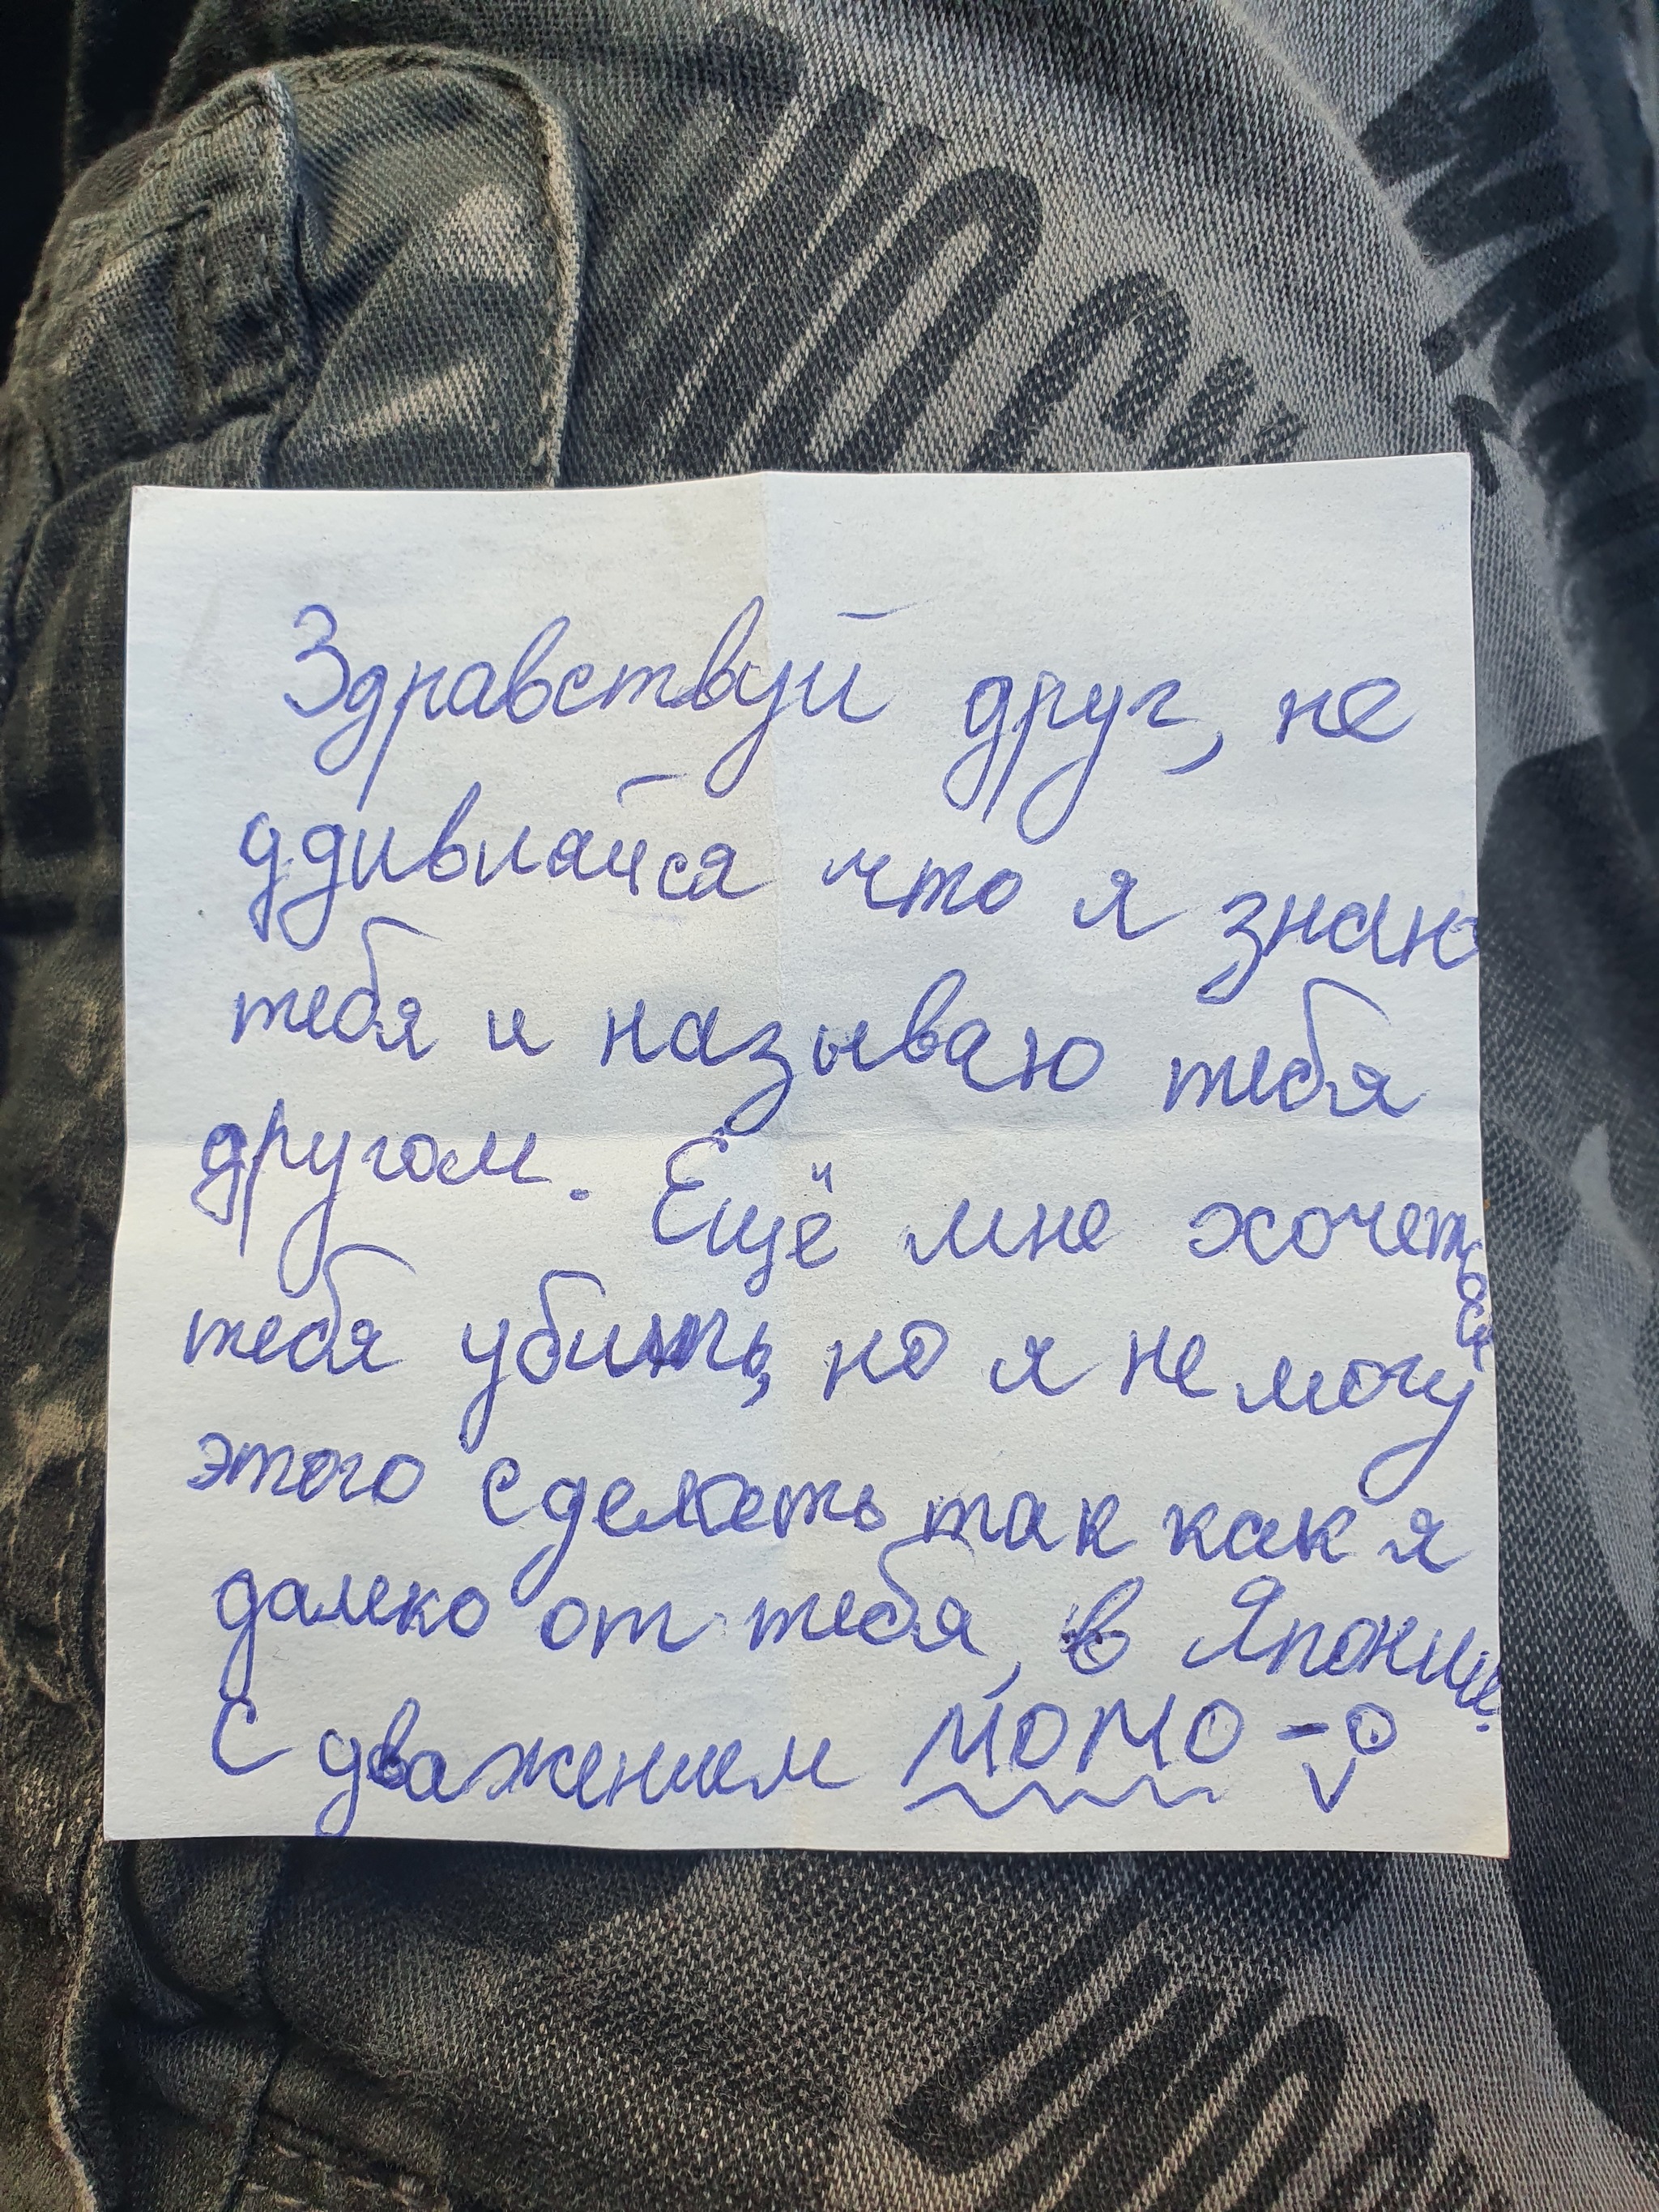 Здравствуй друг, не
удивляйся что я знаю
тебя и называю тебя
другом. Ещё мне хочеться
тебя убить, но я не могу
этого сделать так как я
далеко от тебя, в Японии.
С уважением МОМО -о